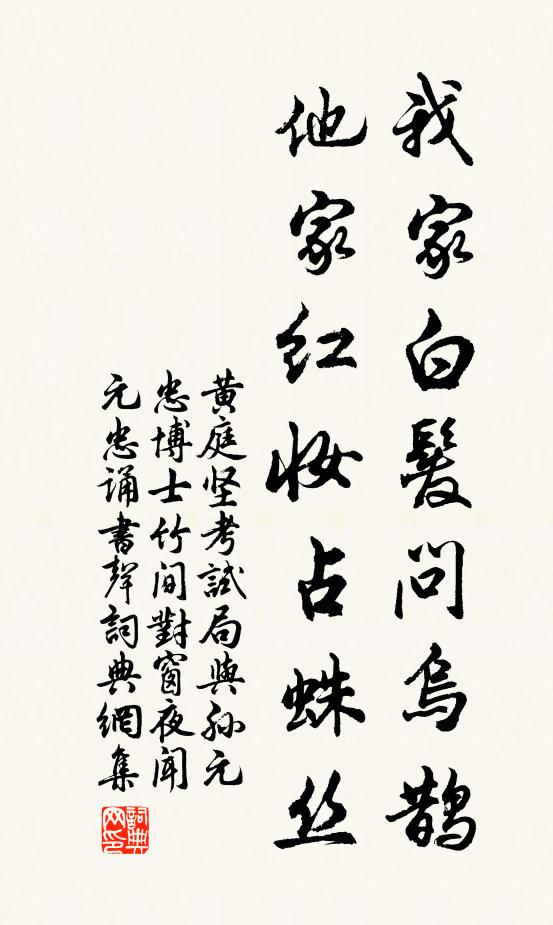 我家白髮問烏鵲
他家红妝占蛛丝
黄庭坚考試局與孙元
忠博士竹间對窗夜聞
元忠誦書聲詞典網集
詞典网印